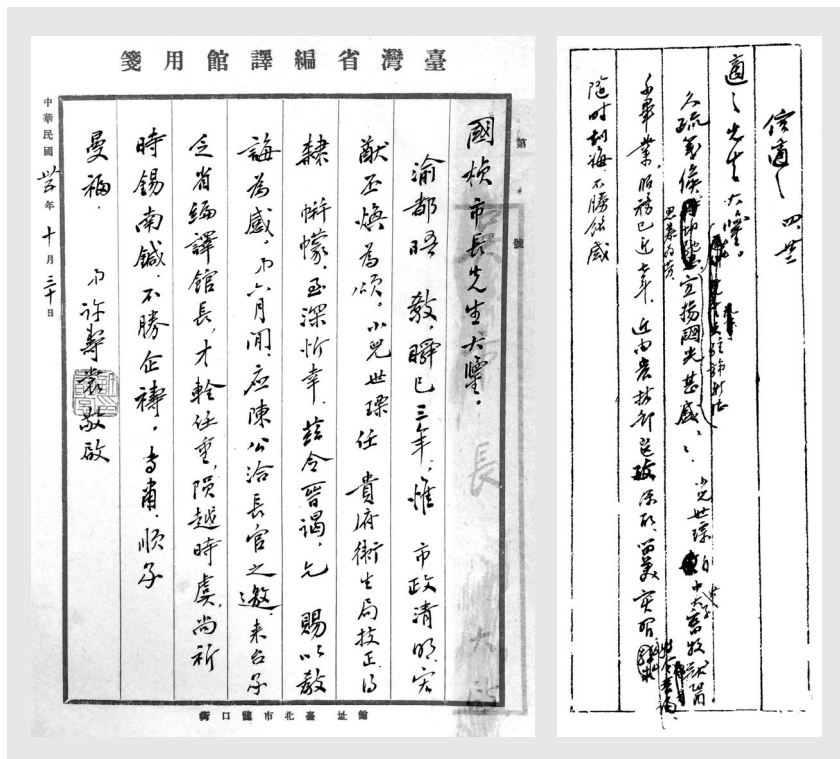 臺灣省編譯館用箋
第 號
國楨市長先生大鑒。
渝都晤 教,瞬已三年,惟 市政清明,宏
猷丕煥為頌。小兒世瑮任 貴府衛生局技正,得
隸 帡幪,至深忻幸,茲令晉謁,乞 賜以教
誨為感,弟六月間,应陳公洽長官之邀,来台承
乏省編譯館長,才輇任重,隕越時虞,尚祈
時錫南鍼,不勝企禱。專肅,順承
曼福。
弟 許壽裳敬啟
中華民國卅五年十月三十日
館址 臺北市龍口街
信適之 四、廿二
適之先生大鑒。
久疏箋候 宣揚國光甚感
小兒世瑮自中大畜牧獸醫
系畢業,服務已近七年,近由農林部 留美實習
随时刻誨,不勝銘感